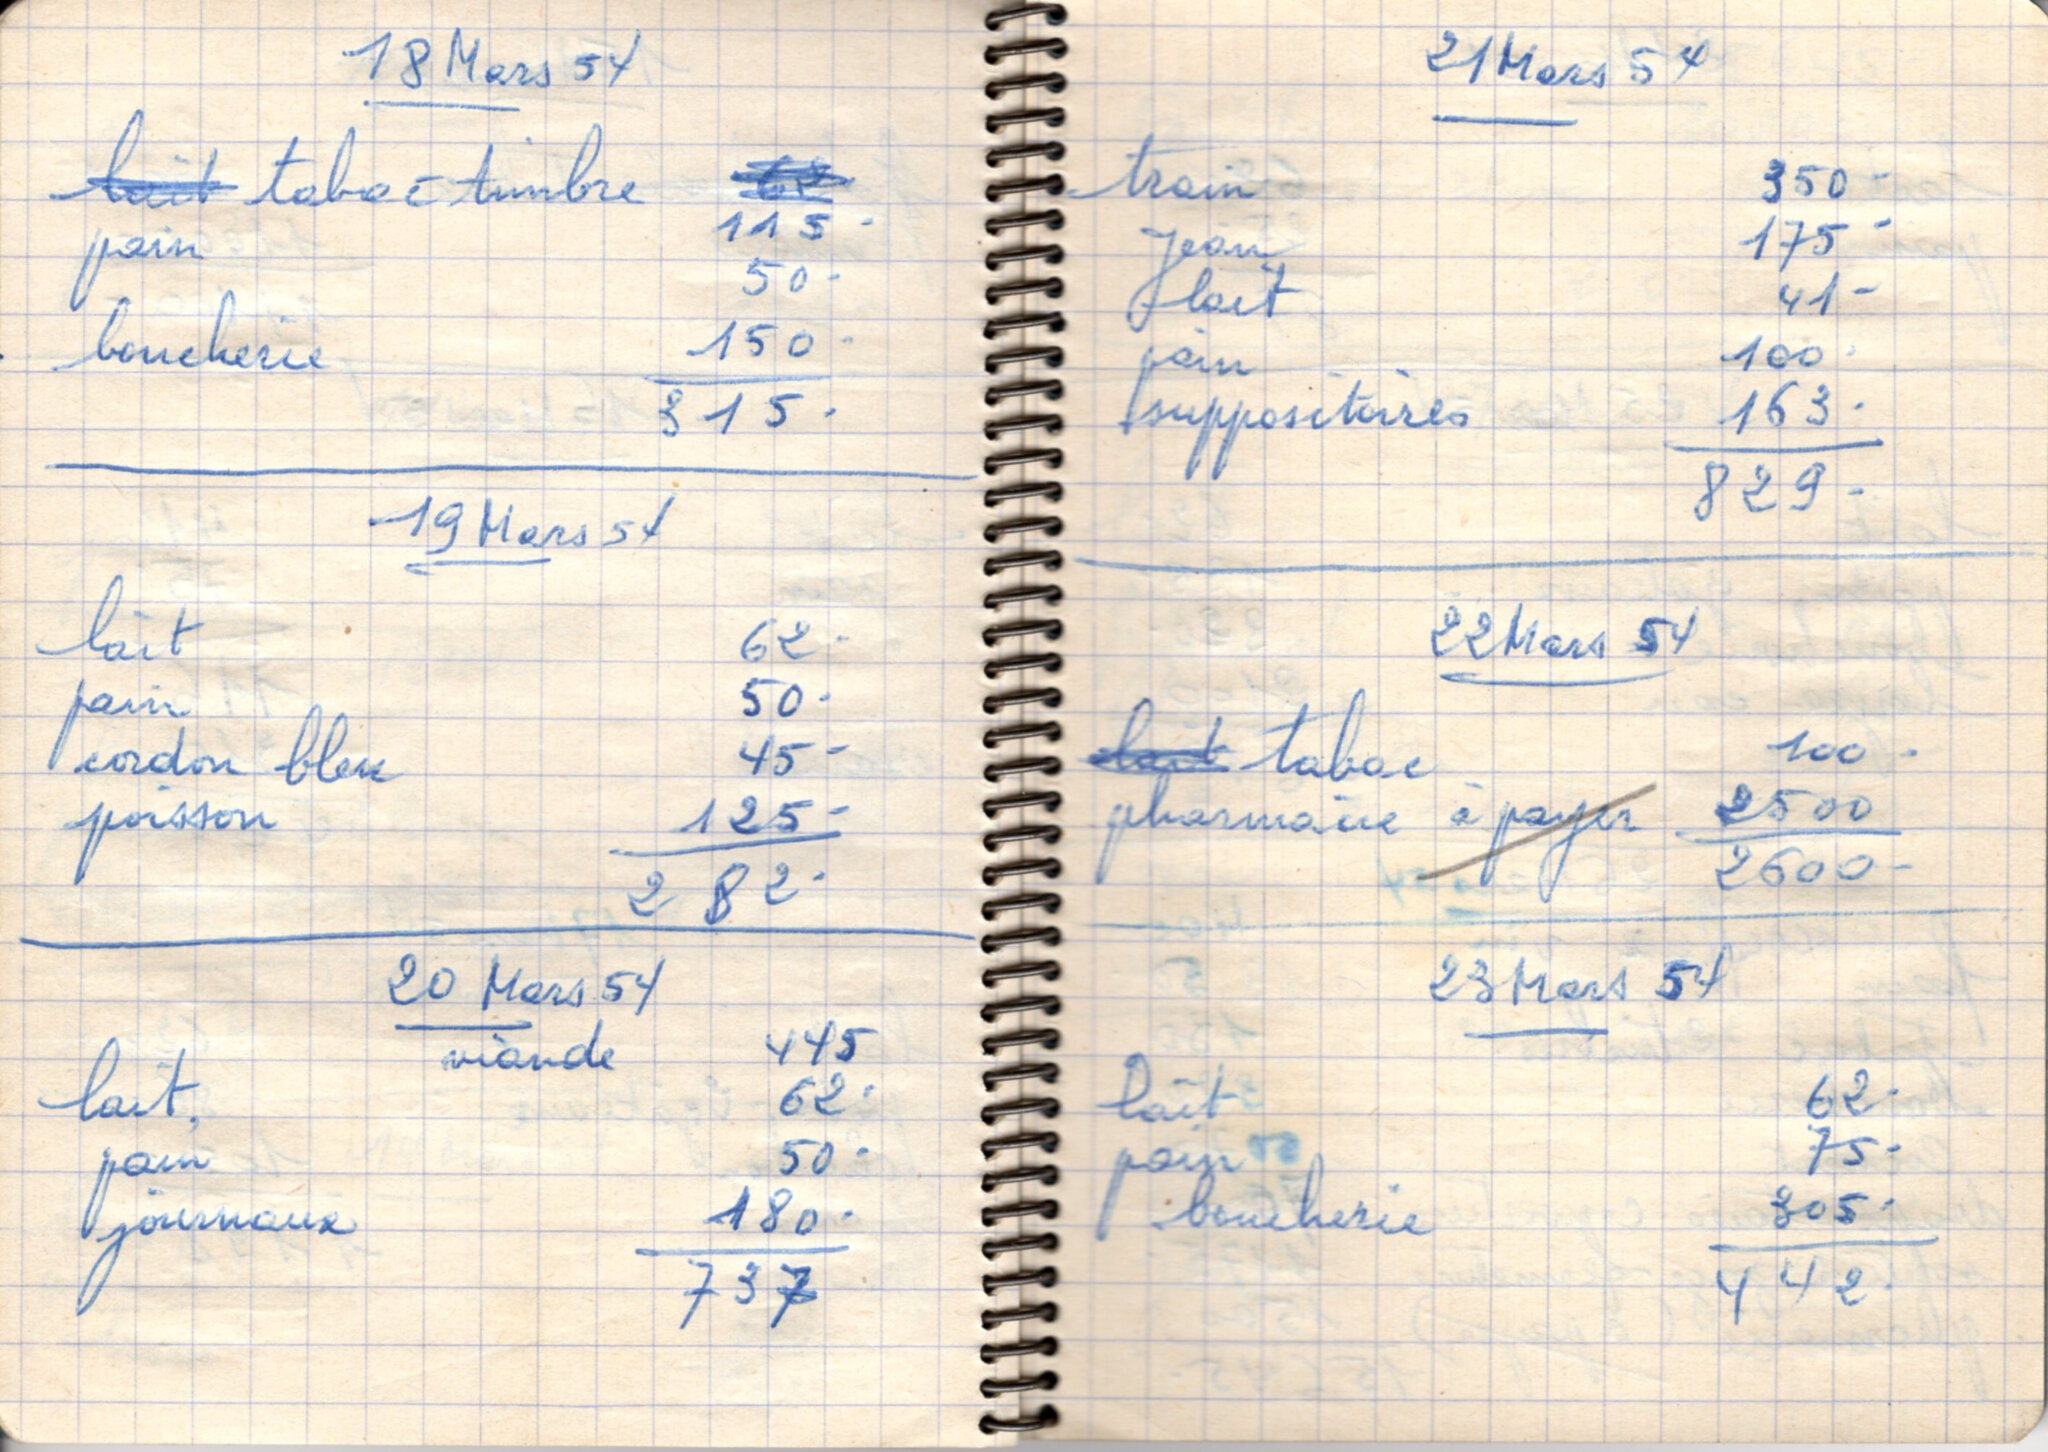 18 Mars 54
lait tabac timbre 62
115-
pain 50-
boucherie 150-
315-
19 Mars 54
lait 62-
pain 50-
cordon bleu 45-
poisson 125-
282-
20 Mars 54
viande 445
lait. 62-
pain 50-
journaux 180-
737
21 Mars 54
train 350-
Jean 175-
lait 41-
pain 100-
suppositoires 163-
829-
22 Mars 54
lait tabac 100-
pharmacie à payer 2500
2600-
23 Mars 54
lait 62-
pain 75-
boucherie 305-
442-